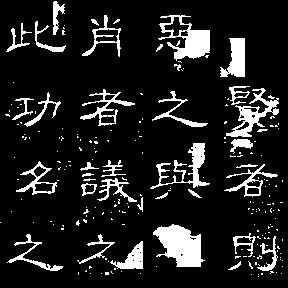 賢者則
惡之與
肖者議之
此功名之